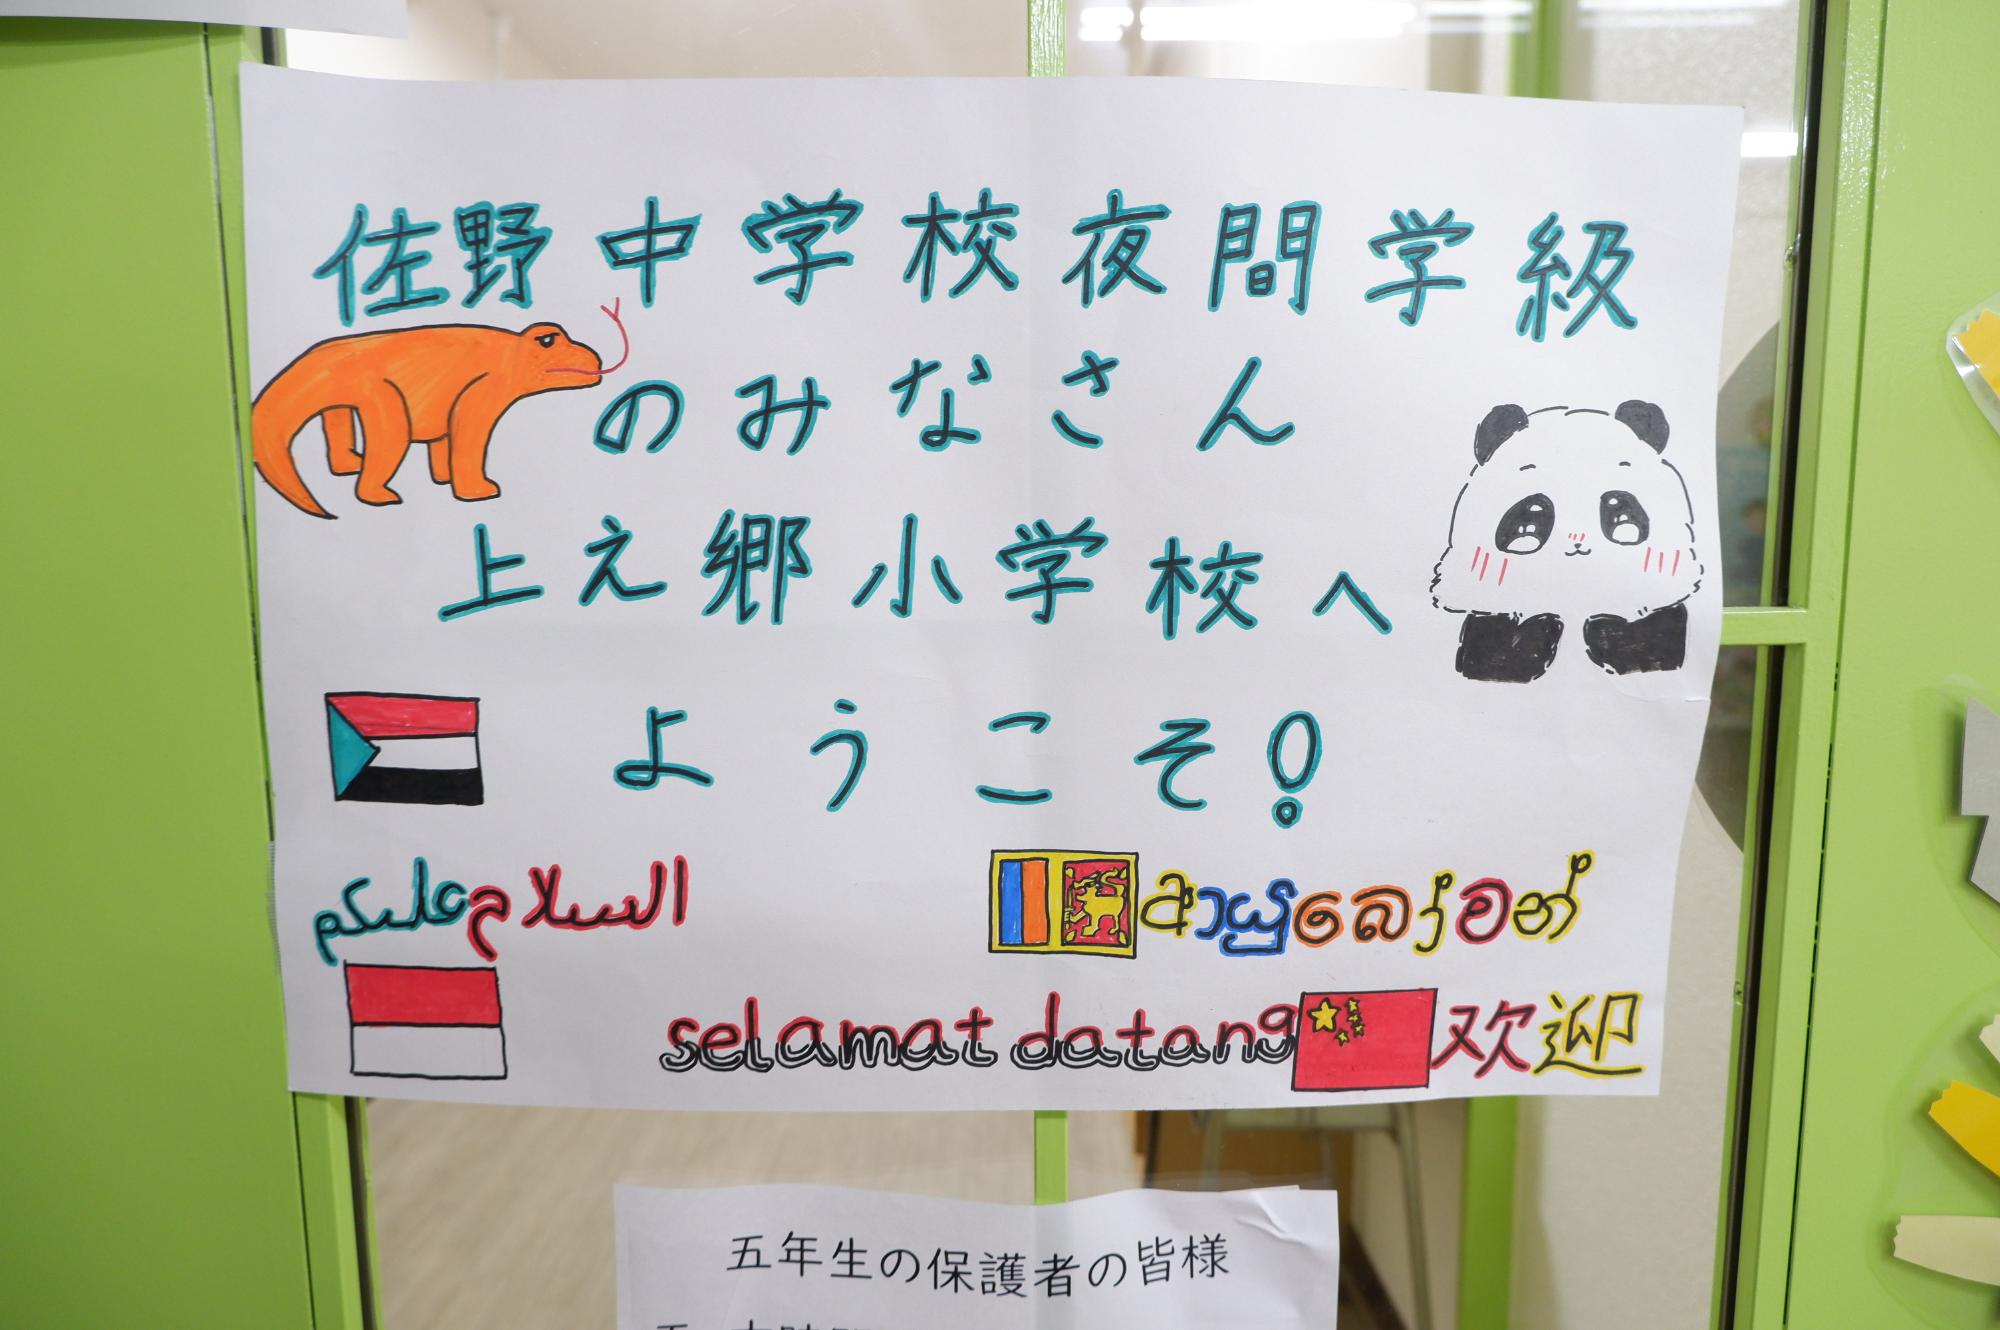 佐野中学校夜間学級
のみなさん
上え郷小学校へ
ようこそ!
السلام عليكم
ආයුබෝවන්
selamat datang
欢迎
五年生の保護者の皆様